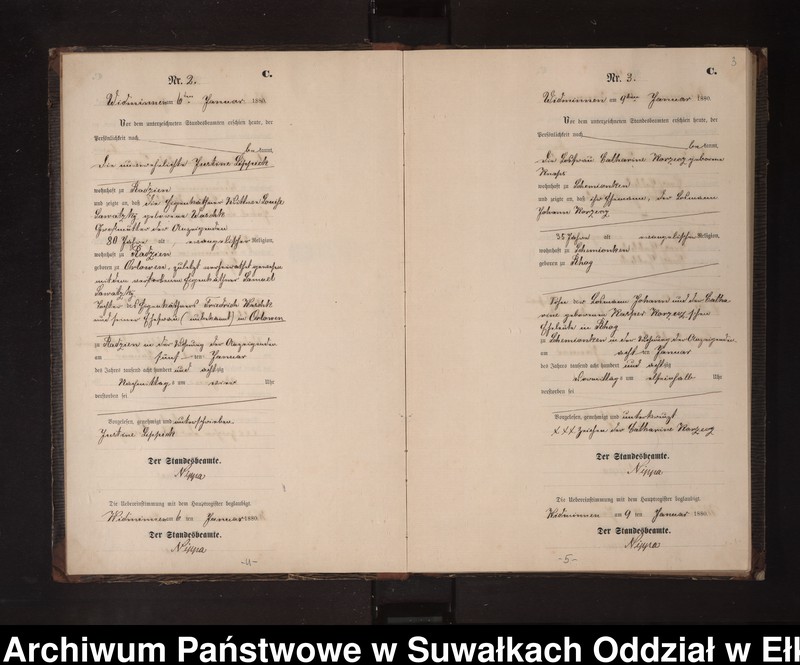 Nr. 2.
C.
Widminnen am 6ten Januar 1880.
Vor dem unterzeichneten Standesbeamten erschien heute, der
Persönlichkeit nach
bekannt,
die unverehelichte Justine Lippick
wohnhaft zu Radzien
und zeigte an, daß die Eigenkäthner Wittwe Louise
Sawatzky, geborene
Großmutter der Anzeigenden
80 Jahre alt, evangelischer Religion,
wohnhaft zu Radzien
geboren zu Orlowen, zuletzt verheirathet gewesen
mit dem verstorbenen Eigenkäthner Samuel
Sawatzky
Tochter des Eigenkäthners Friedrich
und seiner Ehefrau (unbekannt) in Orlowen
zu Radzien in der Wohnung der Anzeigenden
am fünften Januar
des Jahres tausend acht hundert und achtzig
Nachmittags um Uhr
verstorben sei.
Vorgelesen, genehmigt und unterschrieben
Justine Lippick
Der Standesbeamte.
Nippa
Die Uebereinstimmung mit dem Hauptregister beglaubigt.
Widminnen am 6 ten Januar 1880.
Der Standesbeamte.
Nippa
-4-
3
Nr. 3.
C.
Widminnen am 9ten Januar 1880.
Vor dem unterzeichneten Standesbeamten erschien heute, der
Persönlichkeit nach
bekannt,
die Losfrau Catharine Worzerz geborene
wohnhaft zu Schemionken
und zeigte an, daß ihr Ehemann, der Losmann
Johann Worzerz
35 Jahre alt evangelischer Religion,
wohnhaft zu Schemionken
geboren zu
Sohn der Losmann Johann und der Catha
rine geborenen Worzerz'schen
Eheleute in
zu Schemionken in der Wohnung der Anzeigenden
am achten Januar
des Jahres tausend acht hundert und achtzig
Vormittags um Uhr
verstorben sei.
Vorgelesen, genehmigt und unterkreuzt
XXX Zeichen der Catharine Worzerz
Der Standesbeamte.
Nippa
Die Uebereinstimmung mit dem Hauptregister beglaubigt.
Widminnen am 9 ten Januar 1880.
Der Standesbeamte.
Nippa
-5-
Archiwum Państwowe w Suwałkach Oddział w Eł